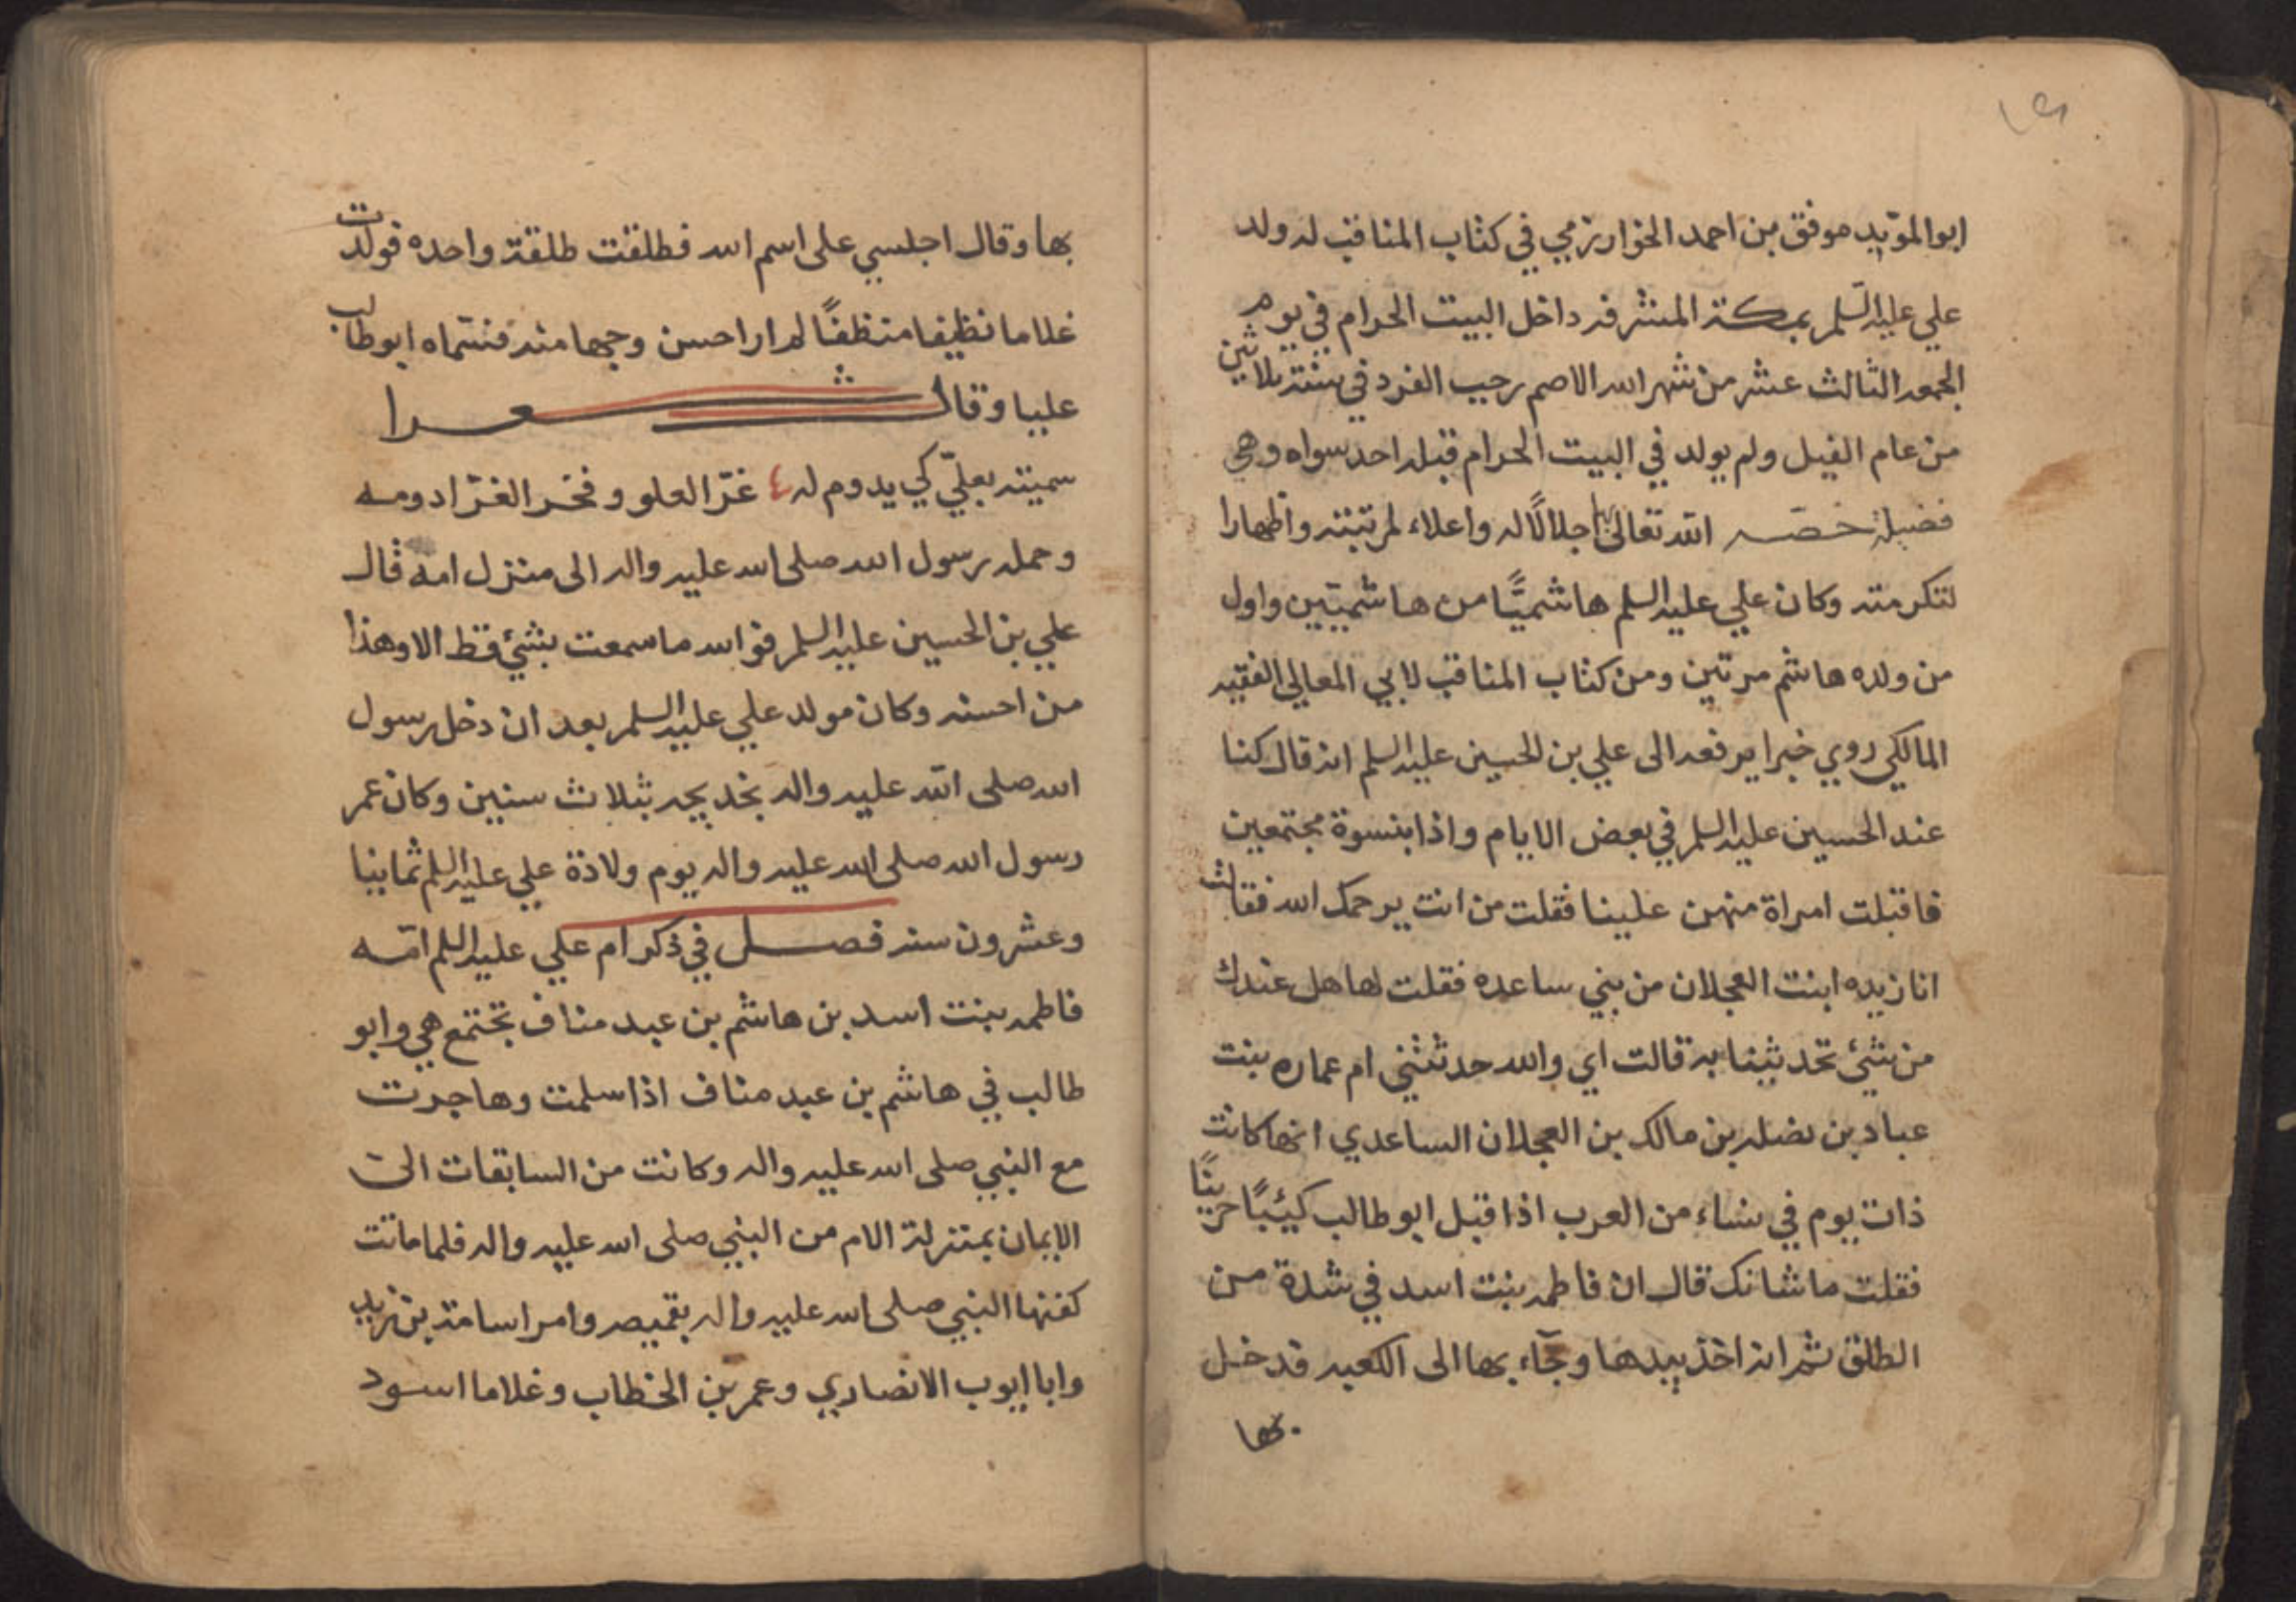 ابو المؤيد موفق بن احمد الخوارزمي في كتاب المناقب له ولد
علي عليه السلم بمكة المشرفه داخل البيت الحرام في يوم
الجمعه الثالث عشر من شهر الله الاصم رجب الفرد في سنة ثلاثين
من عام الفيل ولم يولد في البيت الحرام قبله احد سواه وهي
فضيلة خصه الله تعالى بها اجلالًا له واعلاء لمرتبته واظهارا
لتكرمته وكان علي عليه السلم هاشميًّا من هاشميّين واول
من ولده هاشم مرتين ومن كتاب المناقب لابي المعالي الفقيه
المالكي روي خبرا يرفعه الى علي بن الحسين عليه السلم انه قال كنا
عند الحسين عليه السلم في بعض الايام واذا بنسوة مجتمعين
فاقبلت امراة منهن علينا فقلت من انت يرحمك الله فقالت
انا زيده ابنت العجلان من بني ساعده فقلت لها هل عندك
من شئ تحدثينا به قالت اي والله حدثتني ام عماره بنت
عباد بن نضله بن مالك بن العجلان الساعدي انها كانت
ذات يوم في نساء من العرب اذا قبل ابو طالب كئيبًا حزينًا
فقلت ما شانك قال ان فاطمه بنت اسد في شدة من
الطلق ثم انه اخذ بيدها وجآء بها الى الكعبه فدخل
بها
بها وقال اجلسي على اسم الله فطلقت طلقة واحده فولدت
غلاما نظيفا منظفًا لم ار احسن وجها منه فسماه ابو طالب
عليا وقال شعرا
سميته بعليّ كي يدوم له ٤ عزّ العلو وفخر العزّ ادومه
وحمله رسول الله صلى الله عليه واله الى منزل امه قال
علي بن الحسين عليه السلم فو الله ما سمعت بشئ قط الا وهذا
من احسنه وكان مولد علي عليه السلم بعد ان دخل رسول
الله صلى الله عليه واله بخديجه بثلاث سنين وكان عمر
رسول الله صلى الله عليه واله يوم ولادة علي عليه السلم ثمانيا
وعشرون سنه فصل في ذكر ام علي عليه السلم امّه
فاطمه بنت اسد بن هاشم بن عبد مناف تجتمع هي وابو
طالب في هاشم بن عبد مناف اذا سلمت وهاجرت
مع النبي صلى الله عليه واله وكانت من السابقات الى
الايمان بمنزلة الام من النبي صلى الله عليه واله فلما ماتت
كفنها النبي صلى الله عليه واله بقميصه وامر اسامة بن زيد
وابا ايوب الانصاري وعمر بن الخطاب وغلاما اسود